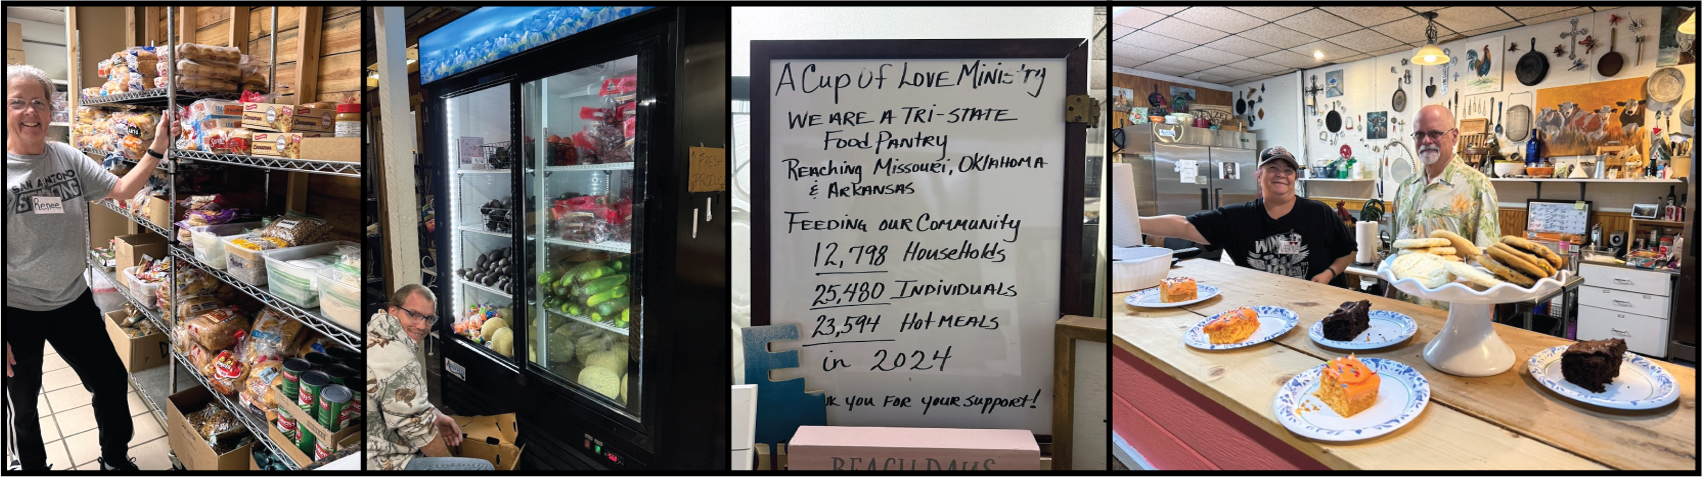 SAN ANTONIO
Renee
FRESH
A CUP OF LOVE MINISTRY
WE ARE A TRI-STATE
FOOD PANTRY
REACHING MISSOURI, OKLAHOMA
& ARKANSAS
FEEDING OUR COMMUNITY
12,798 HOUSEHOLDS
25,480 INDIVIDUALS
23,594 HOT MEALS
in 2024
YOU FOR YOUR SUPPORT!
BEACH DAYS